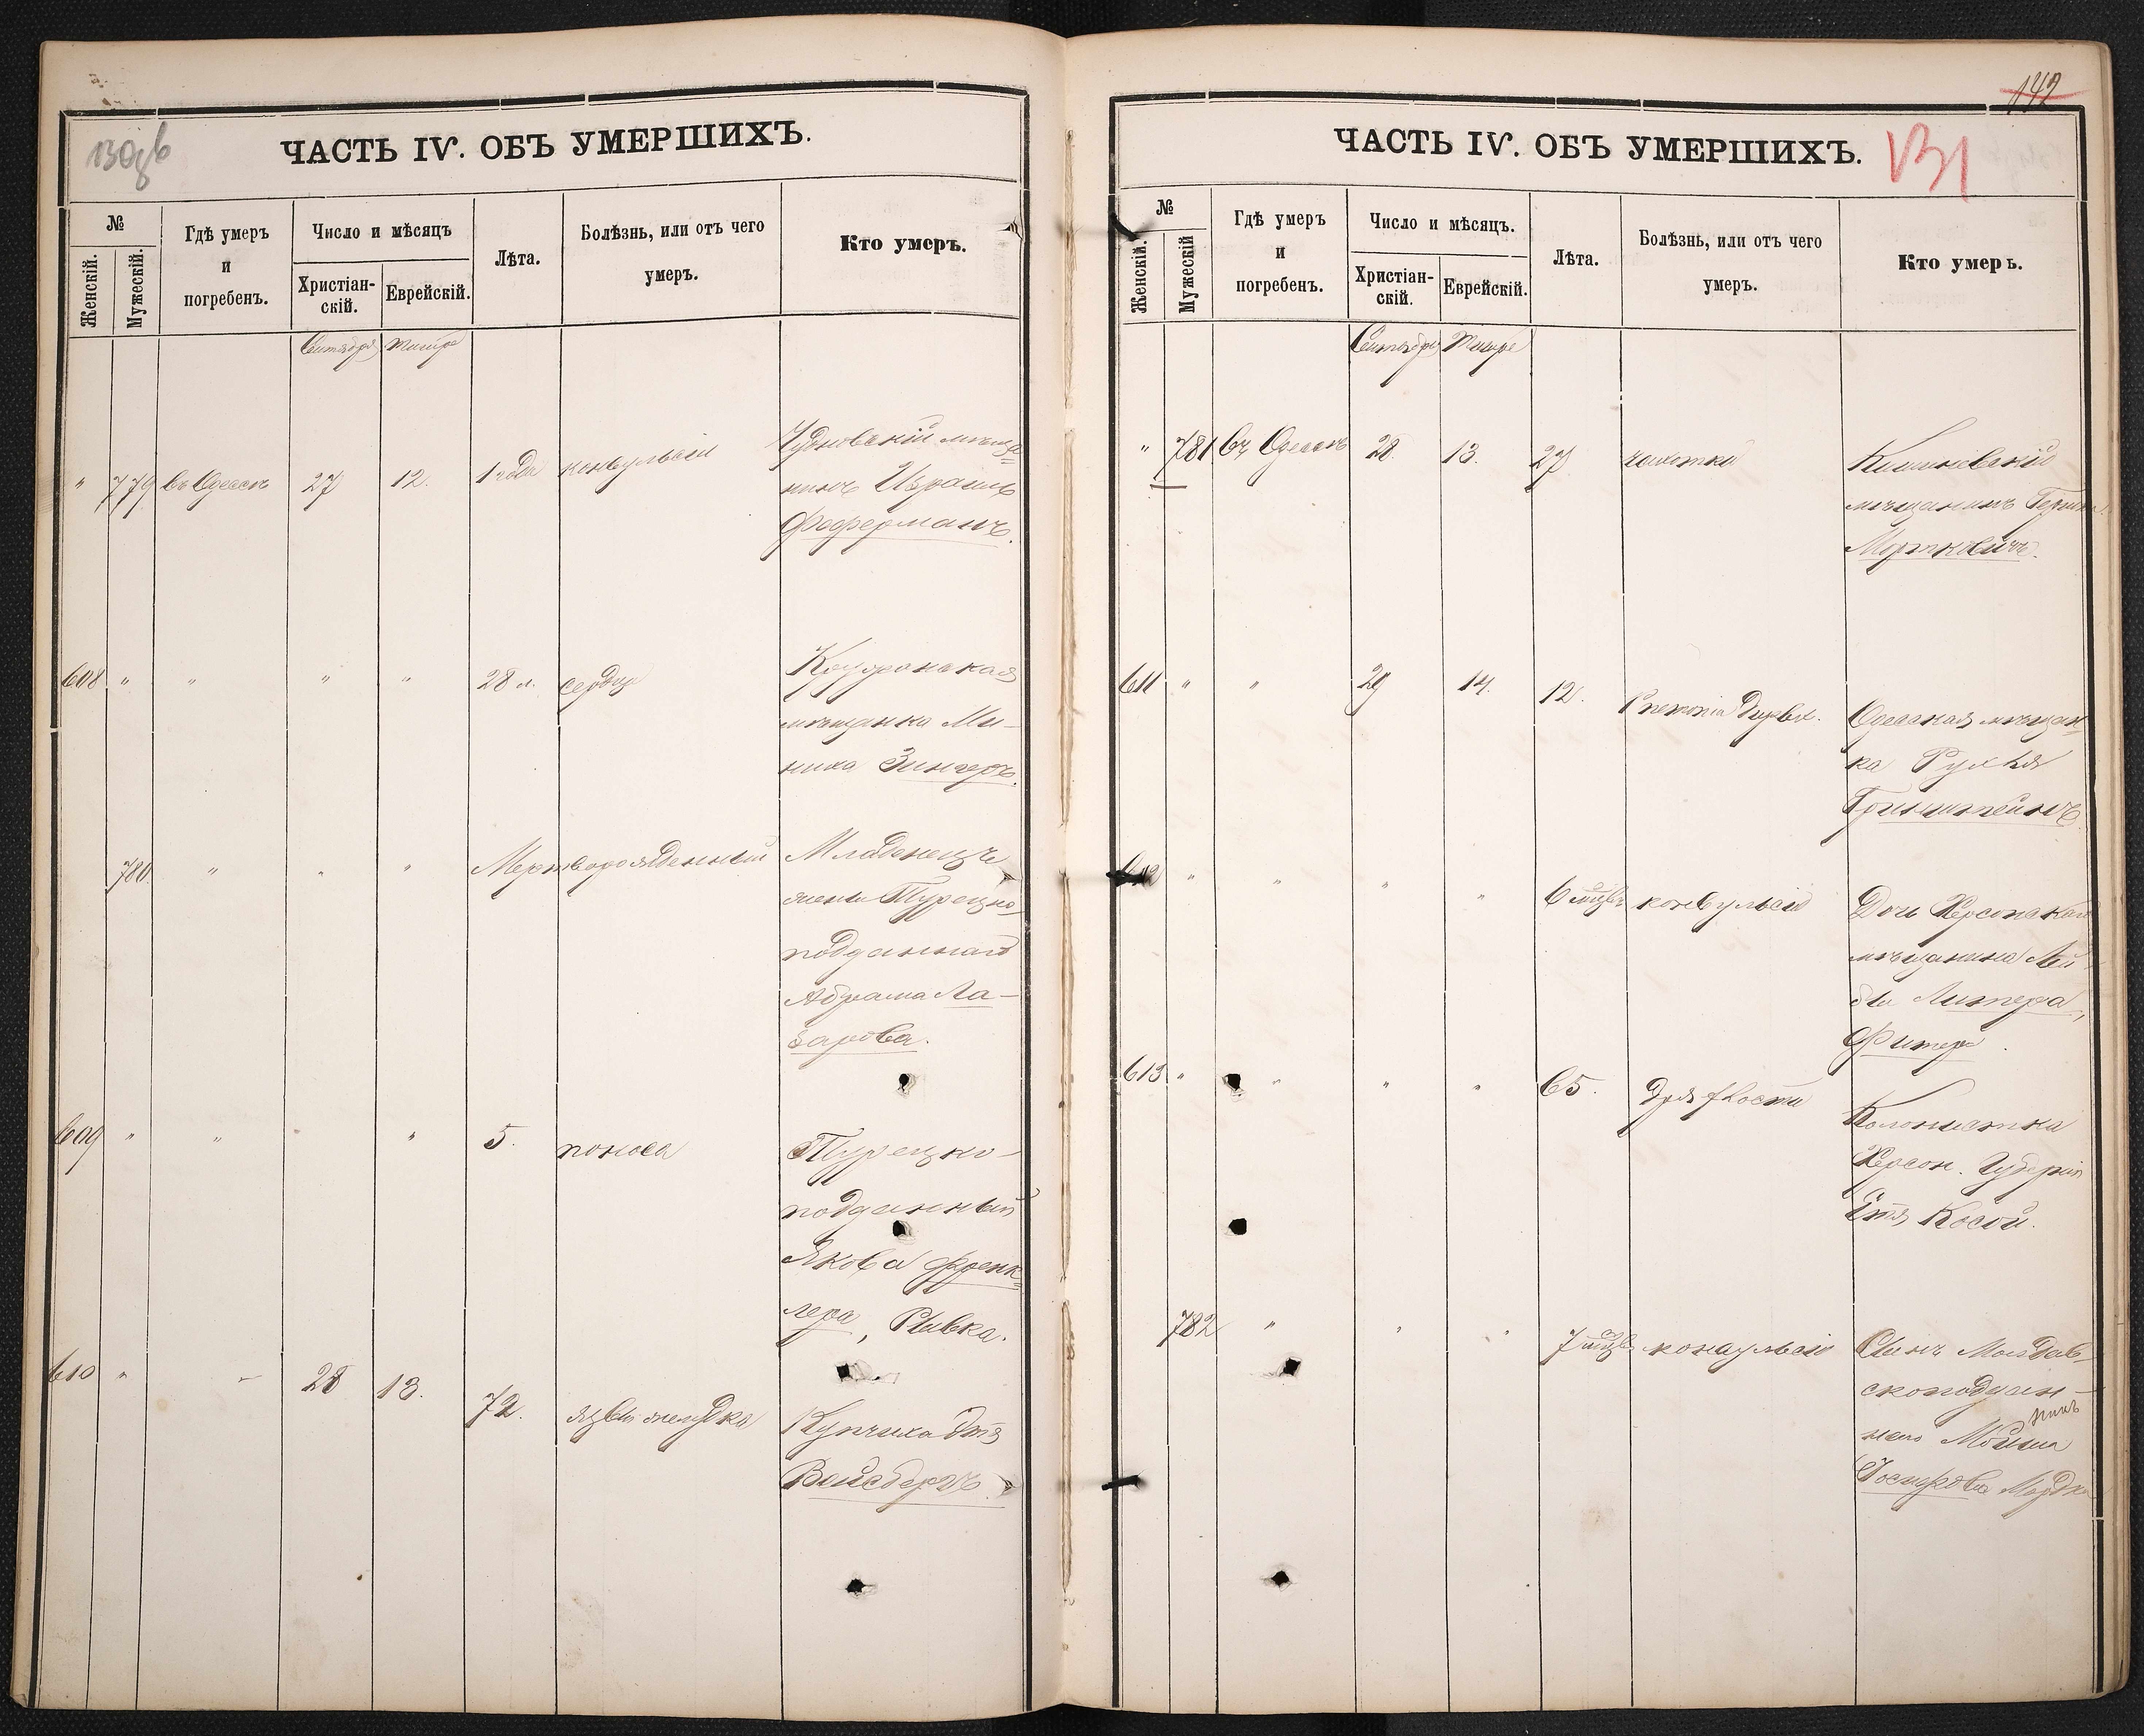 130об
ЧАСТЬ IV. ОБЪ УМЕРШИХЪ.
№
Женскій.
Мужескій.
Гдѣ умеръ
и
погребенъ.
Число и мѣсяцъ
Христіан-
скій.
Еврейскій.
Лѣта.
Болѣзнь, или отъ чего
умеръ.
Кто умеръ.
Сентября Тишре
" 779 въ Одессѣ 27 12. 1 года конвульсіи Чудновскій мѣща=
нинъ Израиль
Феферманъ.
608 " " " " 28 л. сердца
мѣщанка Ми-
ниха Зингеръ.
780 " " " Мертворожденный Младенецъ
жены Турецко-
подданнаго
Абрама Ла-
зарова.
609 " " " 5. поноса Турецко-
подданный
Якова Френк=
лера, Рывка.
610 " 28 13. 72. язвы желудка Купчиха Этя
Вайсбергъ.
142
ЧАСТЬ IV. ОБЪ УМЕРШИХЪ.
131
№
Женскій.
Мужескій
Гдѣ умеръ
и
погребенъ.
Число и мѣсяцъ.
Христіан-
скій.
Еврейскій.
Лѣта.
Болѣзнь, или отъ чего
умеръ.
Кто умеръ.
Сентября Тишре
" 781 въ Одессѣ 28. 13. 27 чахотки Кишиневскій
мѣщанинъ Гершко
Мортковичъ.
611 " " 29 14. 12. Одесская мѣщан=
ка Рухля
Гринштейнъ.
612 " " " " 6 мѣсцвъ конвульсіи Дочь Херсонскаго
мѣщанина Лей
бы Литера,
Фитера.
613 " " " " 65. дряхлости Колонистка
Херсон. Губерніи
Этя Косой.
782 " " " 7 мѣсцв конвульсіи Сынъ Молдав-
скоподдан-
наго Мойши
Іосифова Мордко